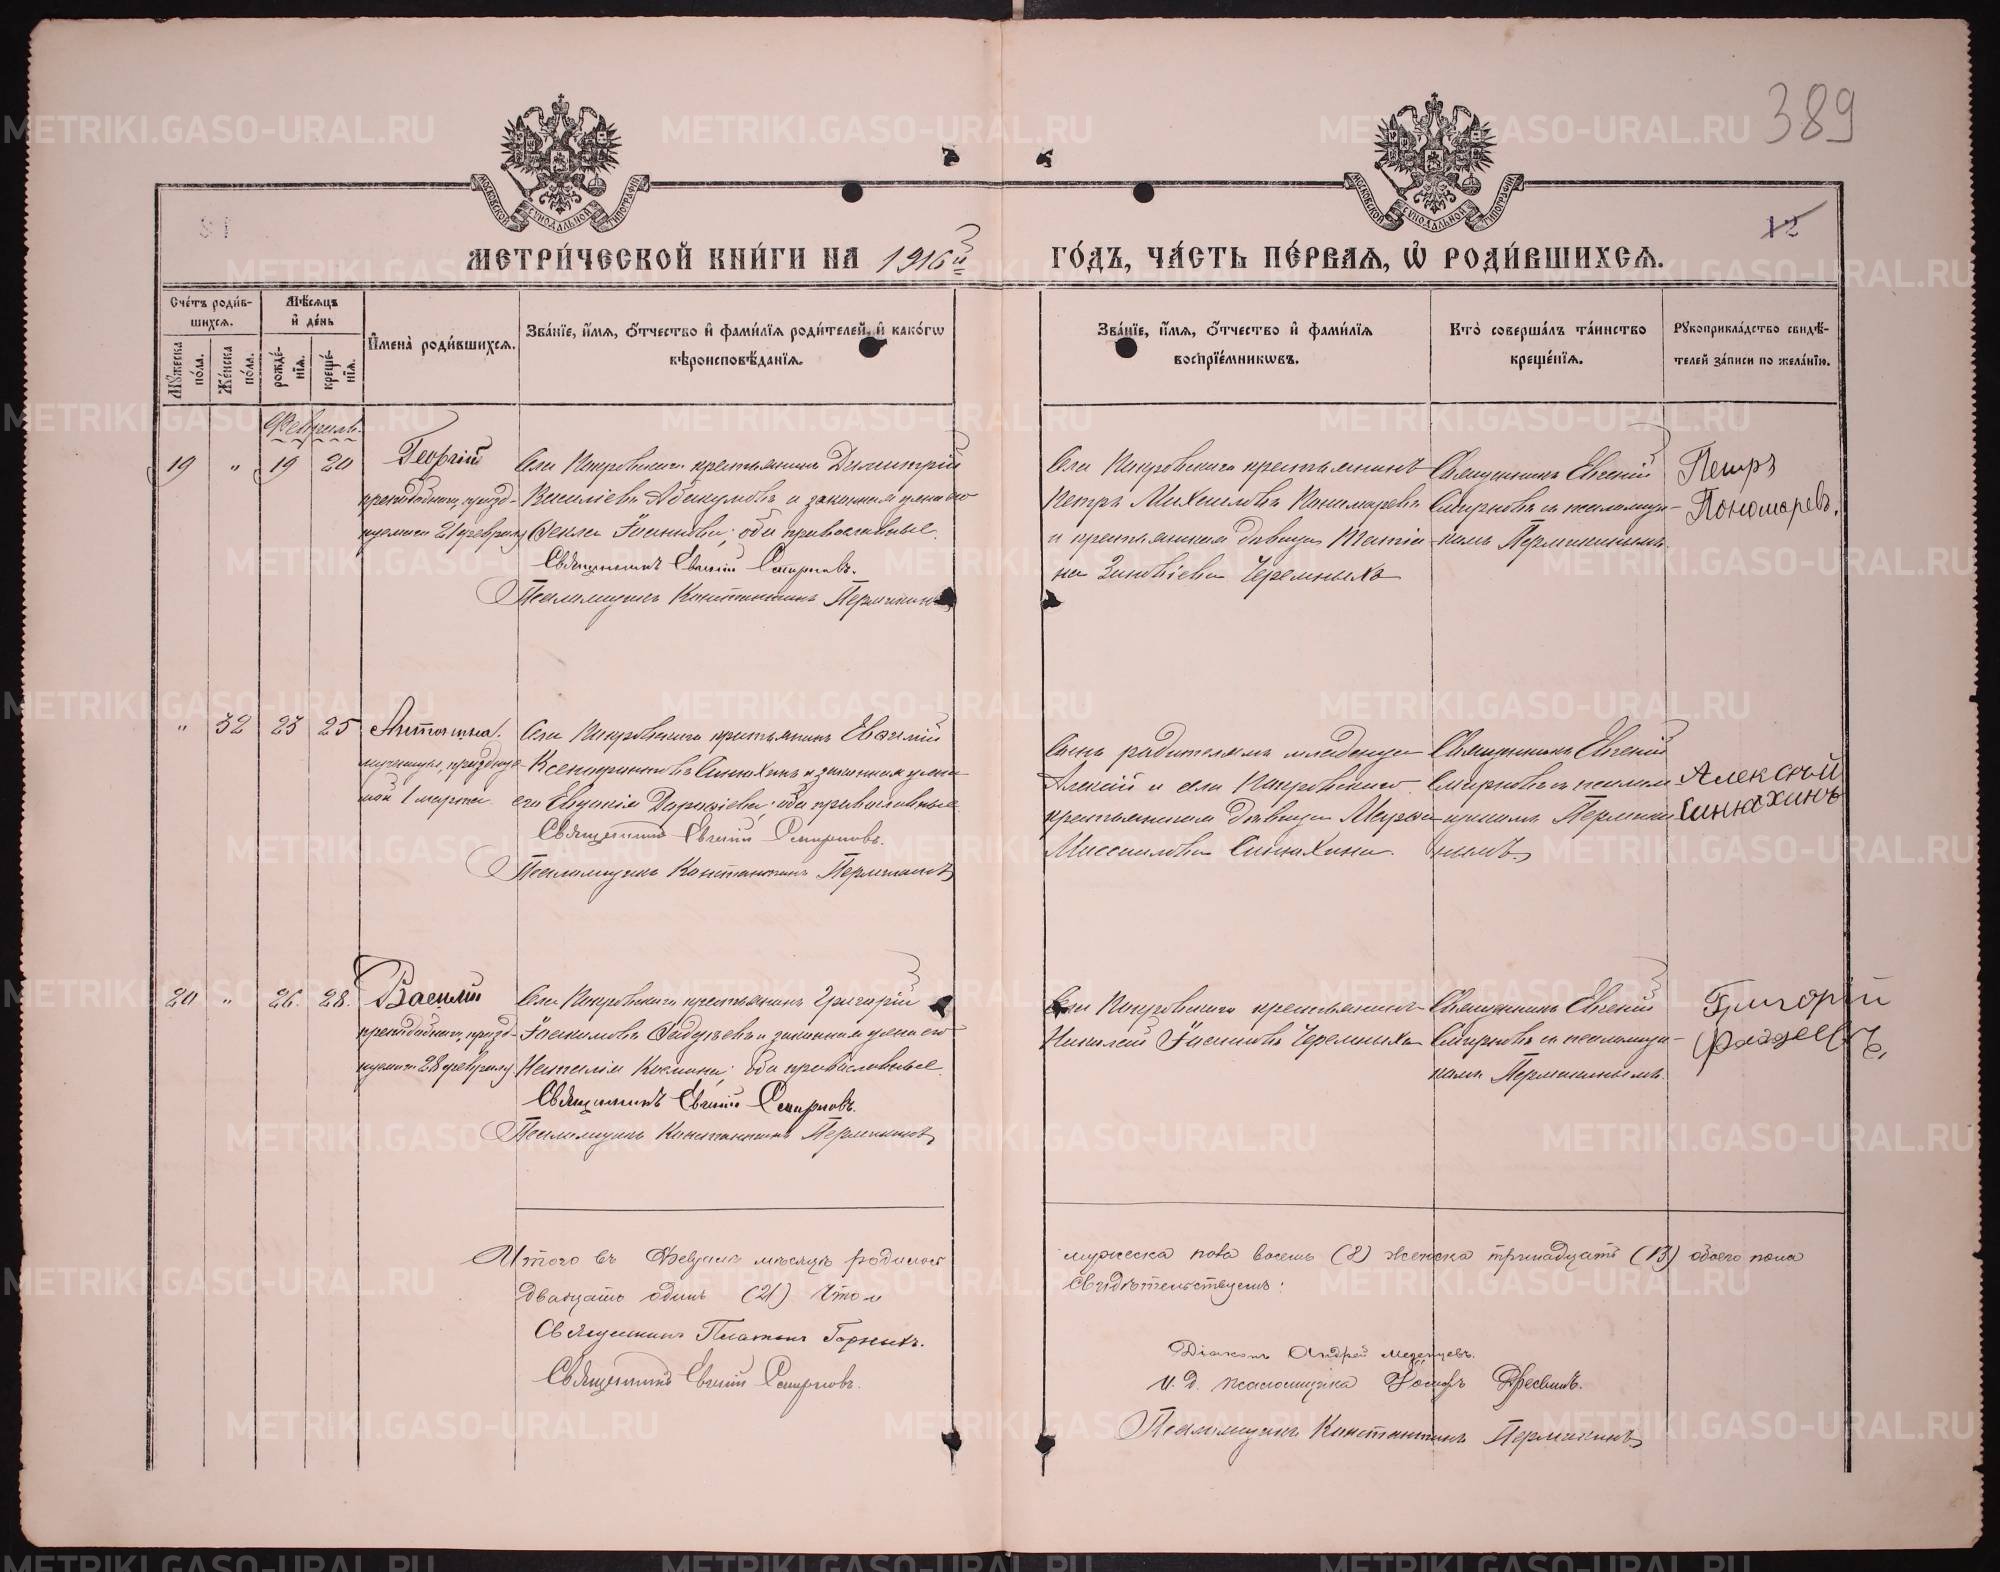 389
МОСКОВСКОЙ СУНОДАЛЬНОЙ ТИПОГРАФІИ
МОСКОВСКОЙ СУНОДАЛЬНОЙ ТИПОГРАФІИ
12
МЕТРИ́ЧЕСКОЙ КНИ́ГИ НА 1916й ГО́ДЪ, ЧА́СТЬ ПЕ́РВАЯ, Ѡ РОДИ́ВШИХСЯ.
Сче́тъ роди́вшихся.
Мѣ́сяцъ и де́нь
Мꙋ́жеска по́ла.
Же́нска по́ла.
рожде́нїя.
креще́нїя.
И́мена̀ роди́вшихся.
Зва́нїе, и́мя, о́тчество и фами́лїя роди́телей, и како́гѡ
вѣроисповѣ́данїя.
Зва́нїе, и́мя, о́тчество и фами́лїя
воспрїе́мникѡвъ.
Кто̀ соверша́лъ та́инство
креще́нїя.
Рꙋкоприкла́дство свидѣ́-
телей за́писи по жела́нїю.
Февраль
19 " 19 20
Георгій
преподобнаго, празд-
нуемаго 21 февраля
Села Покровскаго крестьянинъ Димитрій
Василіевъ Абакумовъ и законная жена его
Фекла Іоаннова; оба православные.
Священникъ Евгеній Смирновъ.
Псаломщикъ Константинъ Пермикинъ
Села Покровскаго крестьянинъ
Петръ Михаиловъ Пономаревъ
и крестьянская девица Татіа-
на Зиновіева Черемныхъ
Священникъ Евгеній
Смирновъ съ псаломщи-
комъ Пермикинымъ.
Петръ
Пономаревъ.
" 32 23 25
Антонина.
мученицы, празднуе-
мой 1 марта.
Села Покровскаго крестьянинъ Евгеній
Ксенофонтовъ Синяхинъ и законная жена
его Евдокія; оба православные
Священникъ Евгеній Смирновъ.
Псаломщикъ Константинъ Пермикинъ
Сынъ родителямъ младенца
Алексій и села Покровскаго
крестьянская девица
Синяхина.
Священникъ Евгеній
Смирновъ съ псалом-
щикомъ Пермики-
нымъ.
Алексѣй
Синяхинъ
20 " 26. 28.
Василій
преподобнаго, празд-
нуемаго 28 февраля
Села Покровскаго крестьянинъ Григорій
Іоакимовъ Фадѣевъ и законная жена его
Наталія Космина; оба православные.
Священникъ Евгеній Смирновъ.
Псаломщикъ Константинъ Пермикинъ
Села Покровскаго крестьянинъ
Николай Іосифовъ Черемныхъ
Священникъ Евгеній
Смирновъ съ псаломщи-
комъ Пермикинымъ.
Григорій
Фадеевъ,
Итого въ Февралѣ мѣсяцѣ родилось мужеска пола восемь (8) женска тринадцать (13) обоего пола
двадцать одинъ (21). Что и свидѣтельствуемъ:
Священникъ Платонъ Горныхъ.
Священникъ Евгеній Смирновъ.
Діаконъ Андрей Медведцевъ.
И. д. псаломщика Іосифъ Дресвинъ.
Псаломщикъ Константинъ Пермикинъ
METRIKI.GASO-URAL.RU